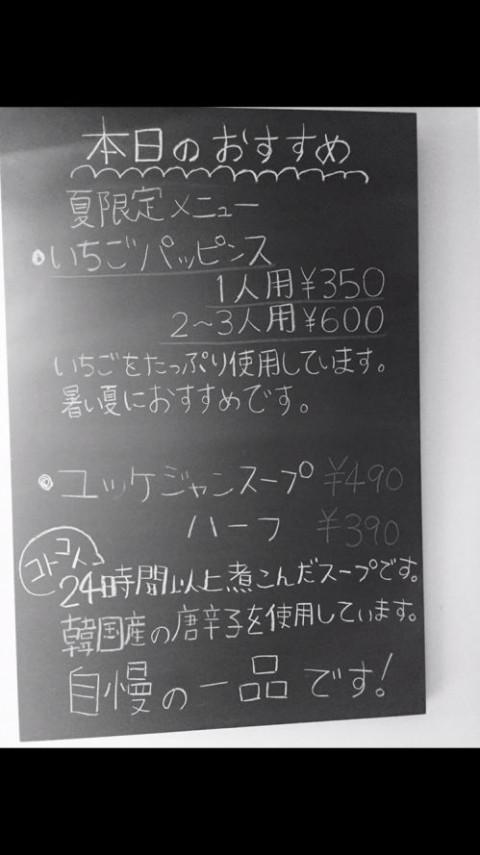 本日のおすすめ
夏限定メニュー
いちごパッピンス
1人用¥350
2〜3人用¥600
いちごをたっぷり使用しています。
暑い夏におすすめです。
ユッケジャンスープ ¥490
ハーフ ¥390
コトコト
24時間以上煮こんだスープです。
韓国産の唐辛子を使用しています。
自慢の一品です!